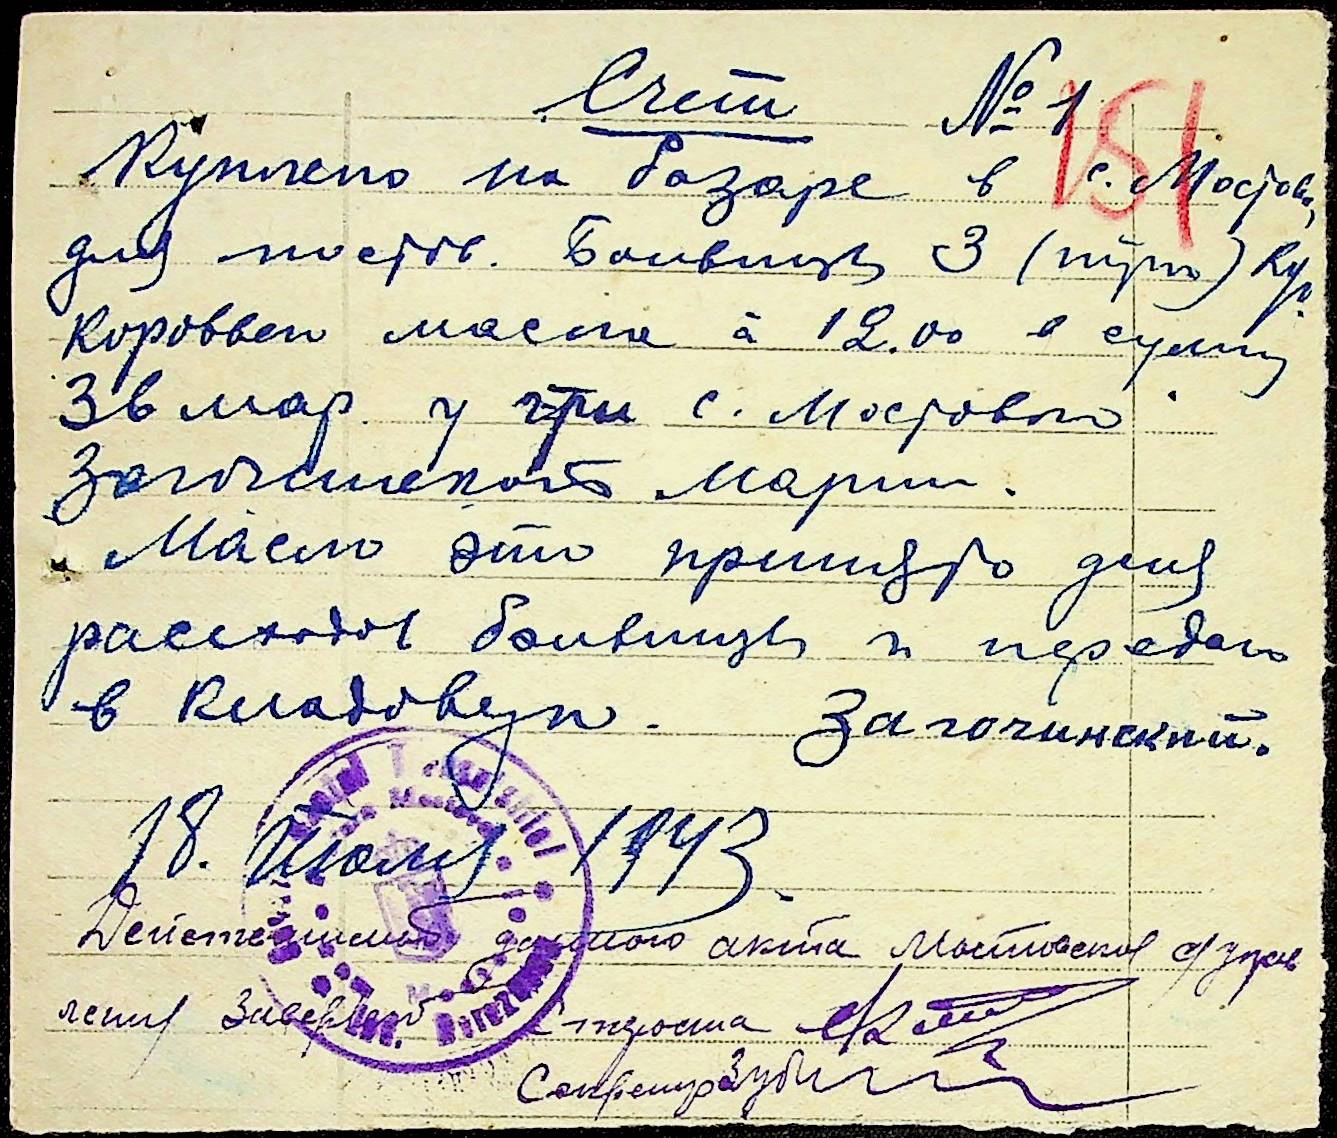 Счет № 1
151
Куплено на базаре в с. Мостов.,
для постов. Больницы 3 (три) кгр.
коровьего масла à 12.00 в сумму
36 мар у гр-ки с. Мостового
Загочинской Марии.
Масло это принято для
расходов больницы и передано
в кладовую. Загочинский.
18. Июля 1943.
Действительность данного акта Мостовское с/управ
ление заверяет
Староста
Секретарь Зуб